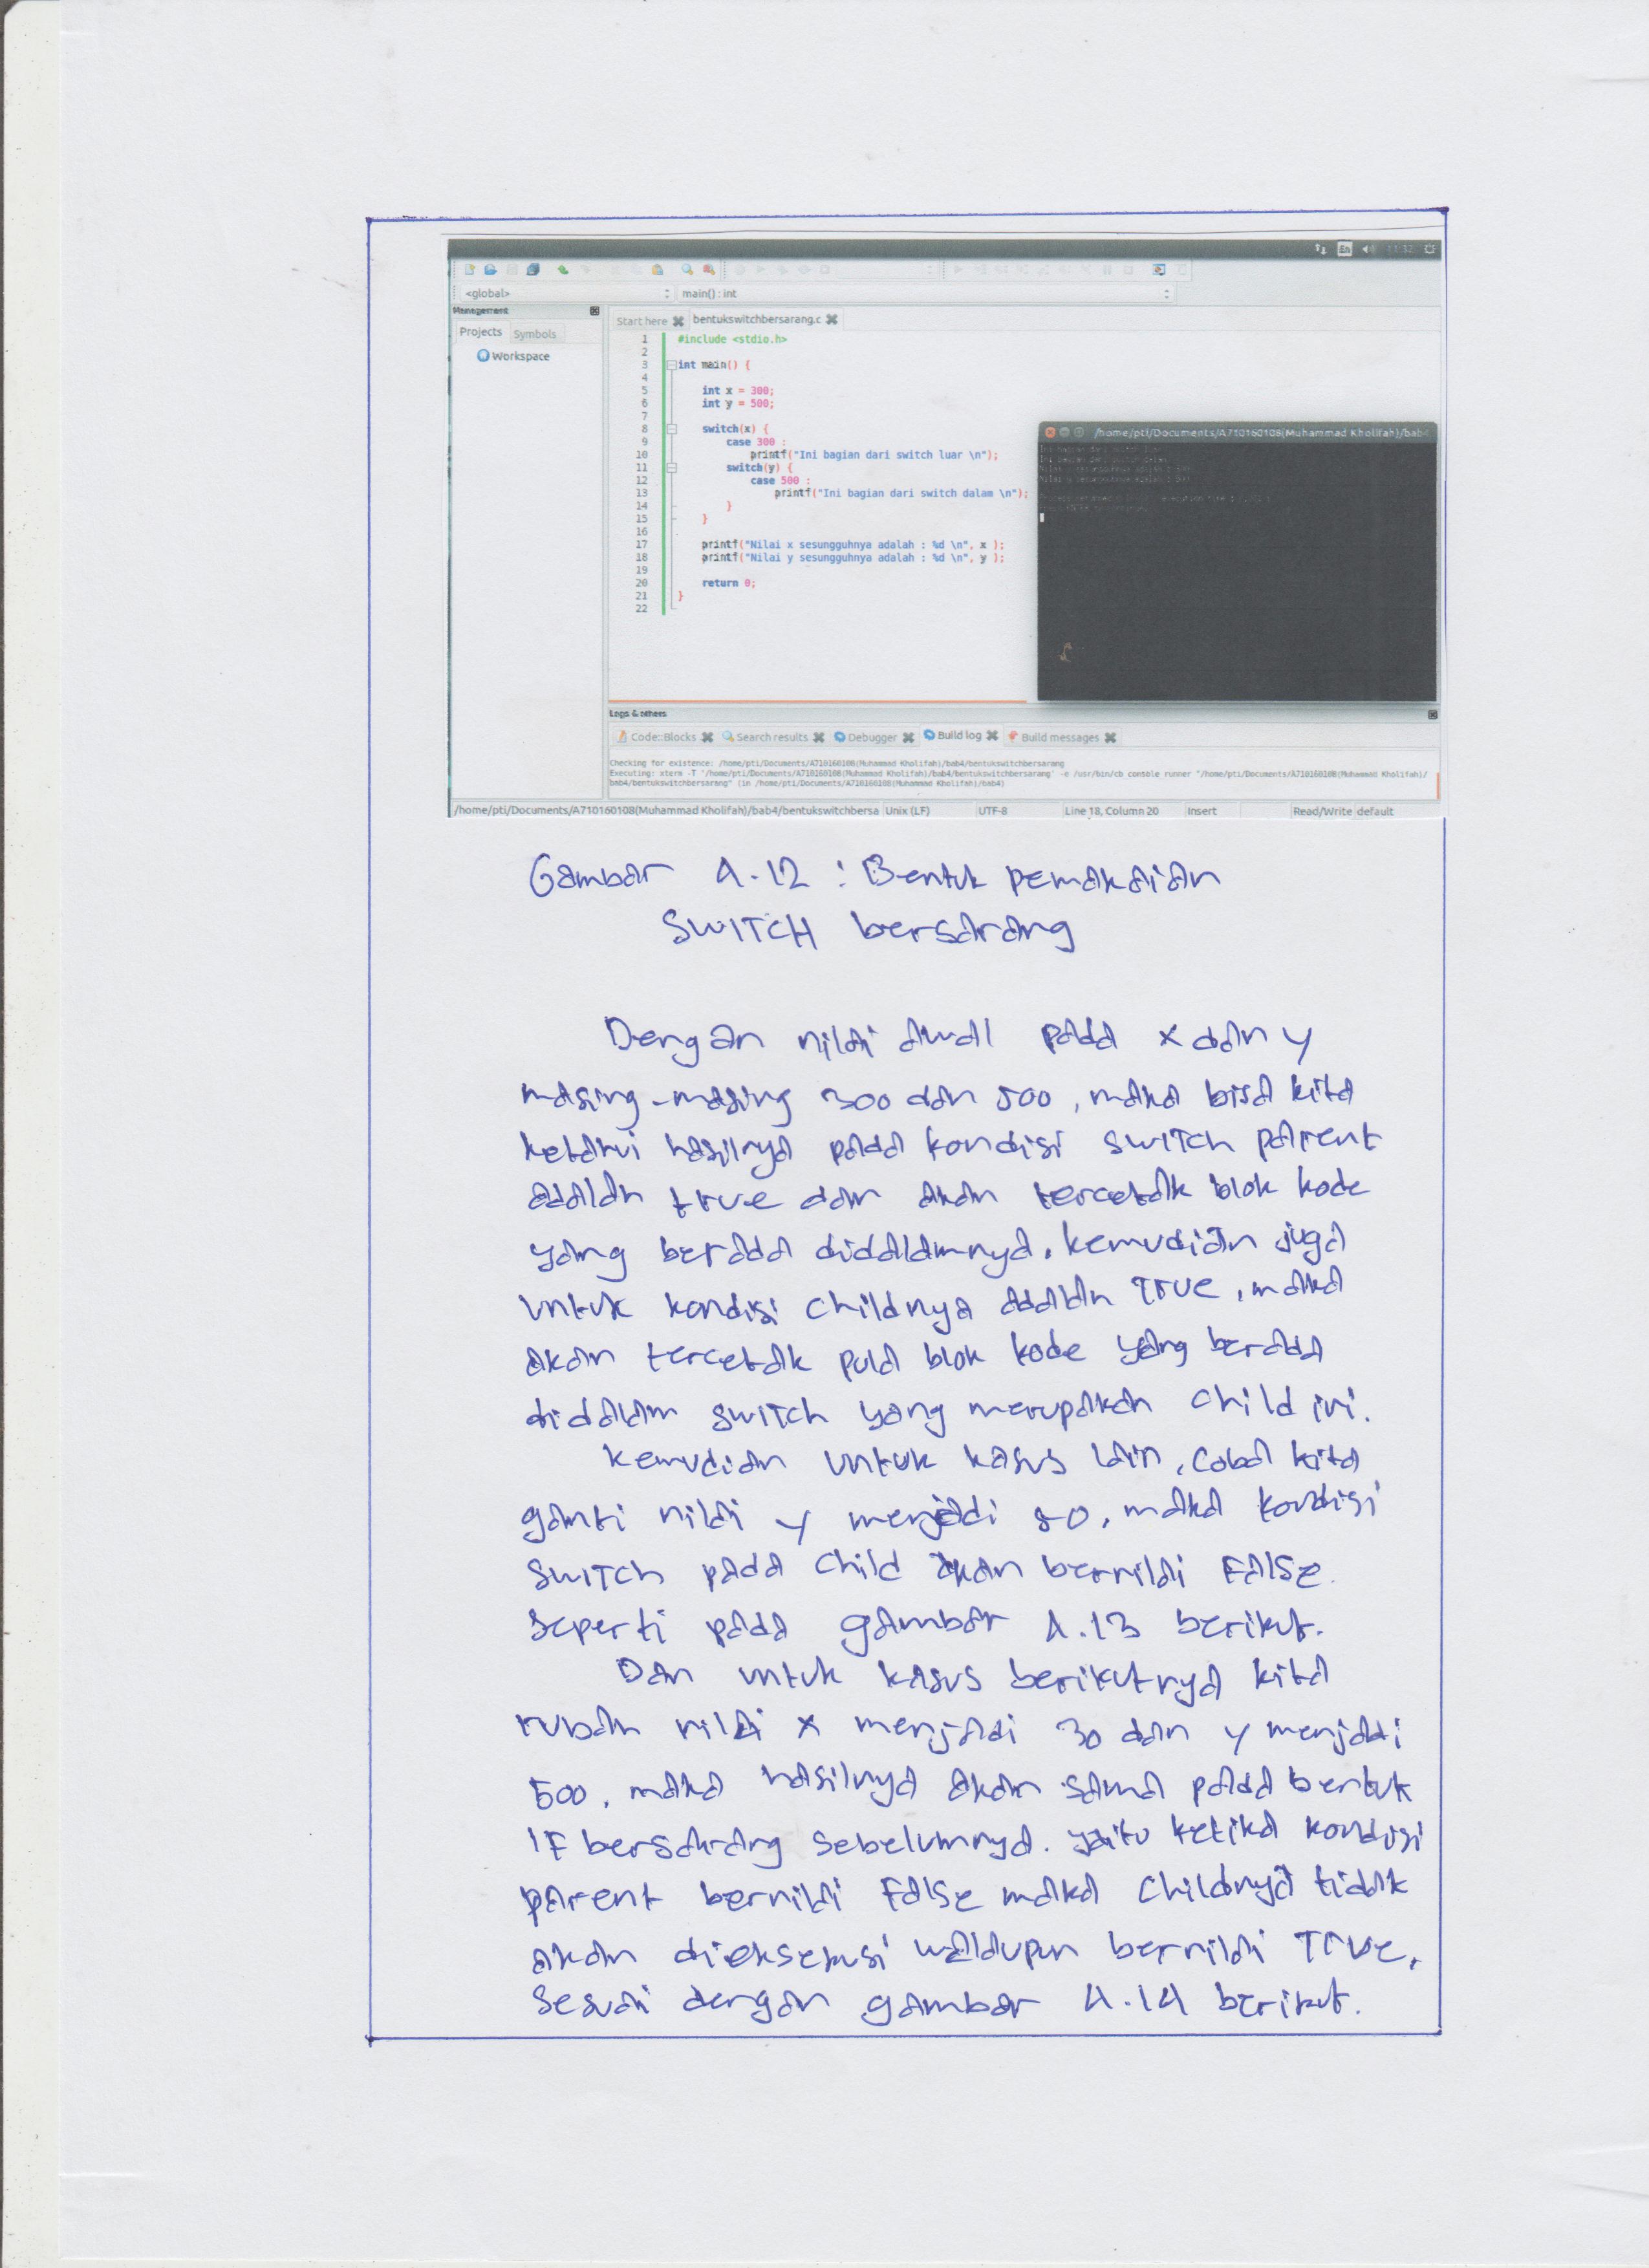 En 11:32
<global> main() : int
Management
Projects Symbols
Workspace
Start here bentukswitchbersarang.c
1 #include <stdio.h>
2
3 int main() {
4
5 int x = 300;
6 int y = 500;
7
8 switch(x) {
9 case 300 :
10 printf("Ini bagian dari switch luar \n");
11 switch(y) {
12 case 500 :
13 printf("Ini bagian dari switch dalam \n");
14 }
15 }
16
17 printf("Nilai x sesungguhnya adalah : %d \n", x );
18 printf("Nilai y sesungguhnya adalah : %d \n", y );
19
20 return 0;
21 }
22
/home/pti/Documents/A710160108(Muhammad Kholifah)/bab4
Logs & others
Code::Blocks Search results Debugger Build log Build messages
Checking for existence: /home/pti/Documents/A710160108(Muhammad Kholifah)/bab4/bentukswitchbersarang
Executing: xterm -T '/home/pti/Documents/A710160108(Muhammad Kholifah)/bab4/bentukswitchbersarang' -e /usr/bin/cb_console_runner "/home/pti/Documents/A710160108(Muhammad Kholifah)/
bab4/bentukswitchbersarang" (in /home/pti/Documents/A710160108(Muhammad Kholifah)/bab4)
/home/pti/Documents/A710160108(Muhammad Kholifah)/bab4/bentukswitchbersa Unix (LF) UTF-8 Line 18, Column 20 Insert Read/Write default
Gambar 4.12 : Bentuk pemakaian
SWITCH bersarang
Dengan nilai awal pada x dan y
masing-masing 300 dan 500, maka bisa kita
ketahui hasilnya pada kondisi switch parent
adalah true dan akan tercetak blok kode
yang berada didalamnya. kemudian juga
untuk kondisi childnya adalah True, maka
akan tercetak pula blok kode yang berada
didalam switch yang merupakan child ini.
Kemudian untuk kasus lain, coba kita
ganti nilai y menjadi 50, maka kondisi
switch pada child akan bernilai False.
seperti pada gambar 4.13 berikut.
Dan untuk kasus berikutnya kita
rubah nilai x menjadi 30 dan y menjadi
500, maka hasilnya akan sama pada bentuk
IF bersarang sebelumnya. yaitu ketika kondisi
parent bernilai False maka childnya tidak
akan dieksekusi walaupun bernilai True.
Sesuai dengan gambar 4.14 berikut.